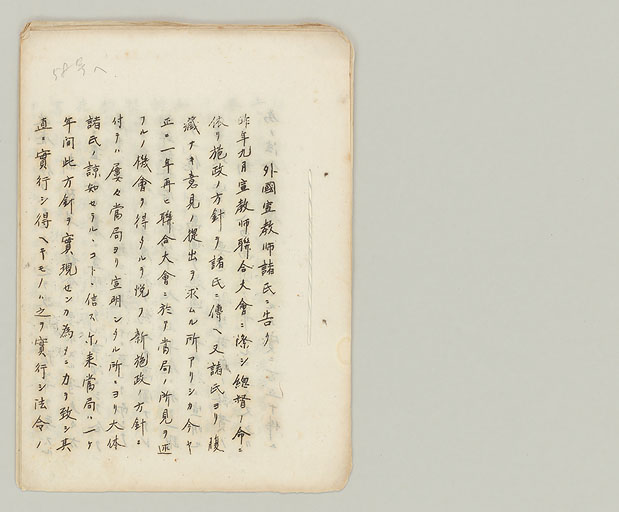 58号へ
外國宣教師諸氏ニ告ク
昨年九月宣教師聯合大會ニ際シ總督ノ命ニ
依リ施政ノ方針ヲ諸氏ニ傳ヘ又諸氏ヨリ腹
藏ナキ意見ノ提出ヲ求ムル所アリシカ今ヤ
正ニ一年再ヒ聯合大會ニ於テ當局ノ所見ヲ述
フルノ機會ヲ得タルヲ悦フ新施政ノ方針ニ
付テハ屡々當局ヨリ宣明シタル所ニヨリ大体
諸氏ノ諒知セラルヽコトヽ信ス尓来當局ハ一ケ
年间此方針ヲ實現センカ為メニ力ヲ致シ其
直ニ實行シ得ヘキモノハ之ヲ實行シ法令ノ